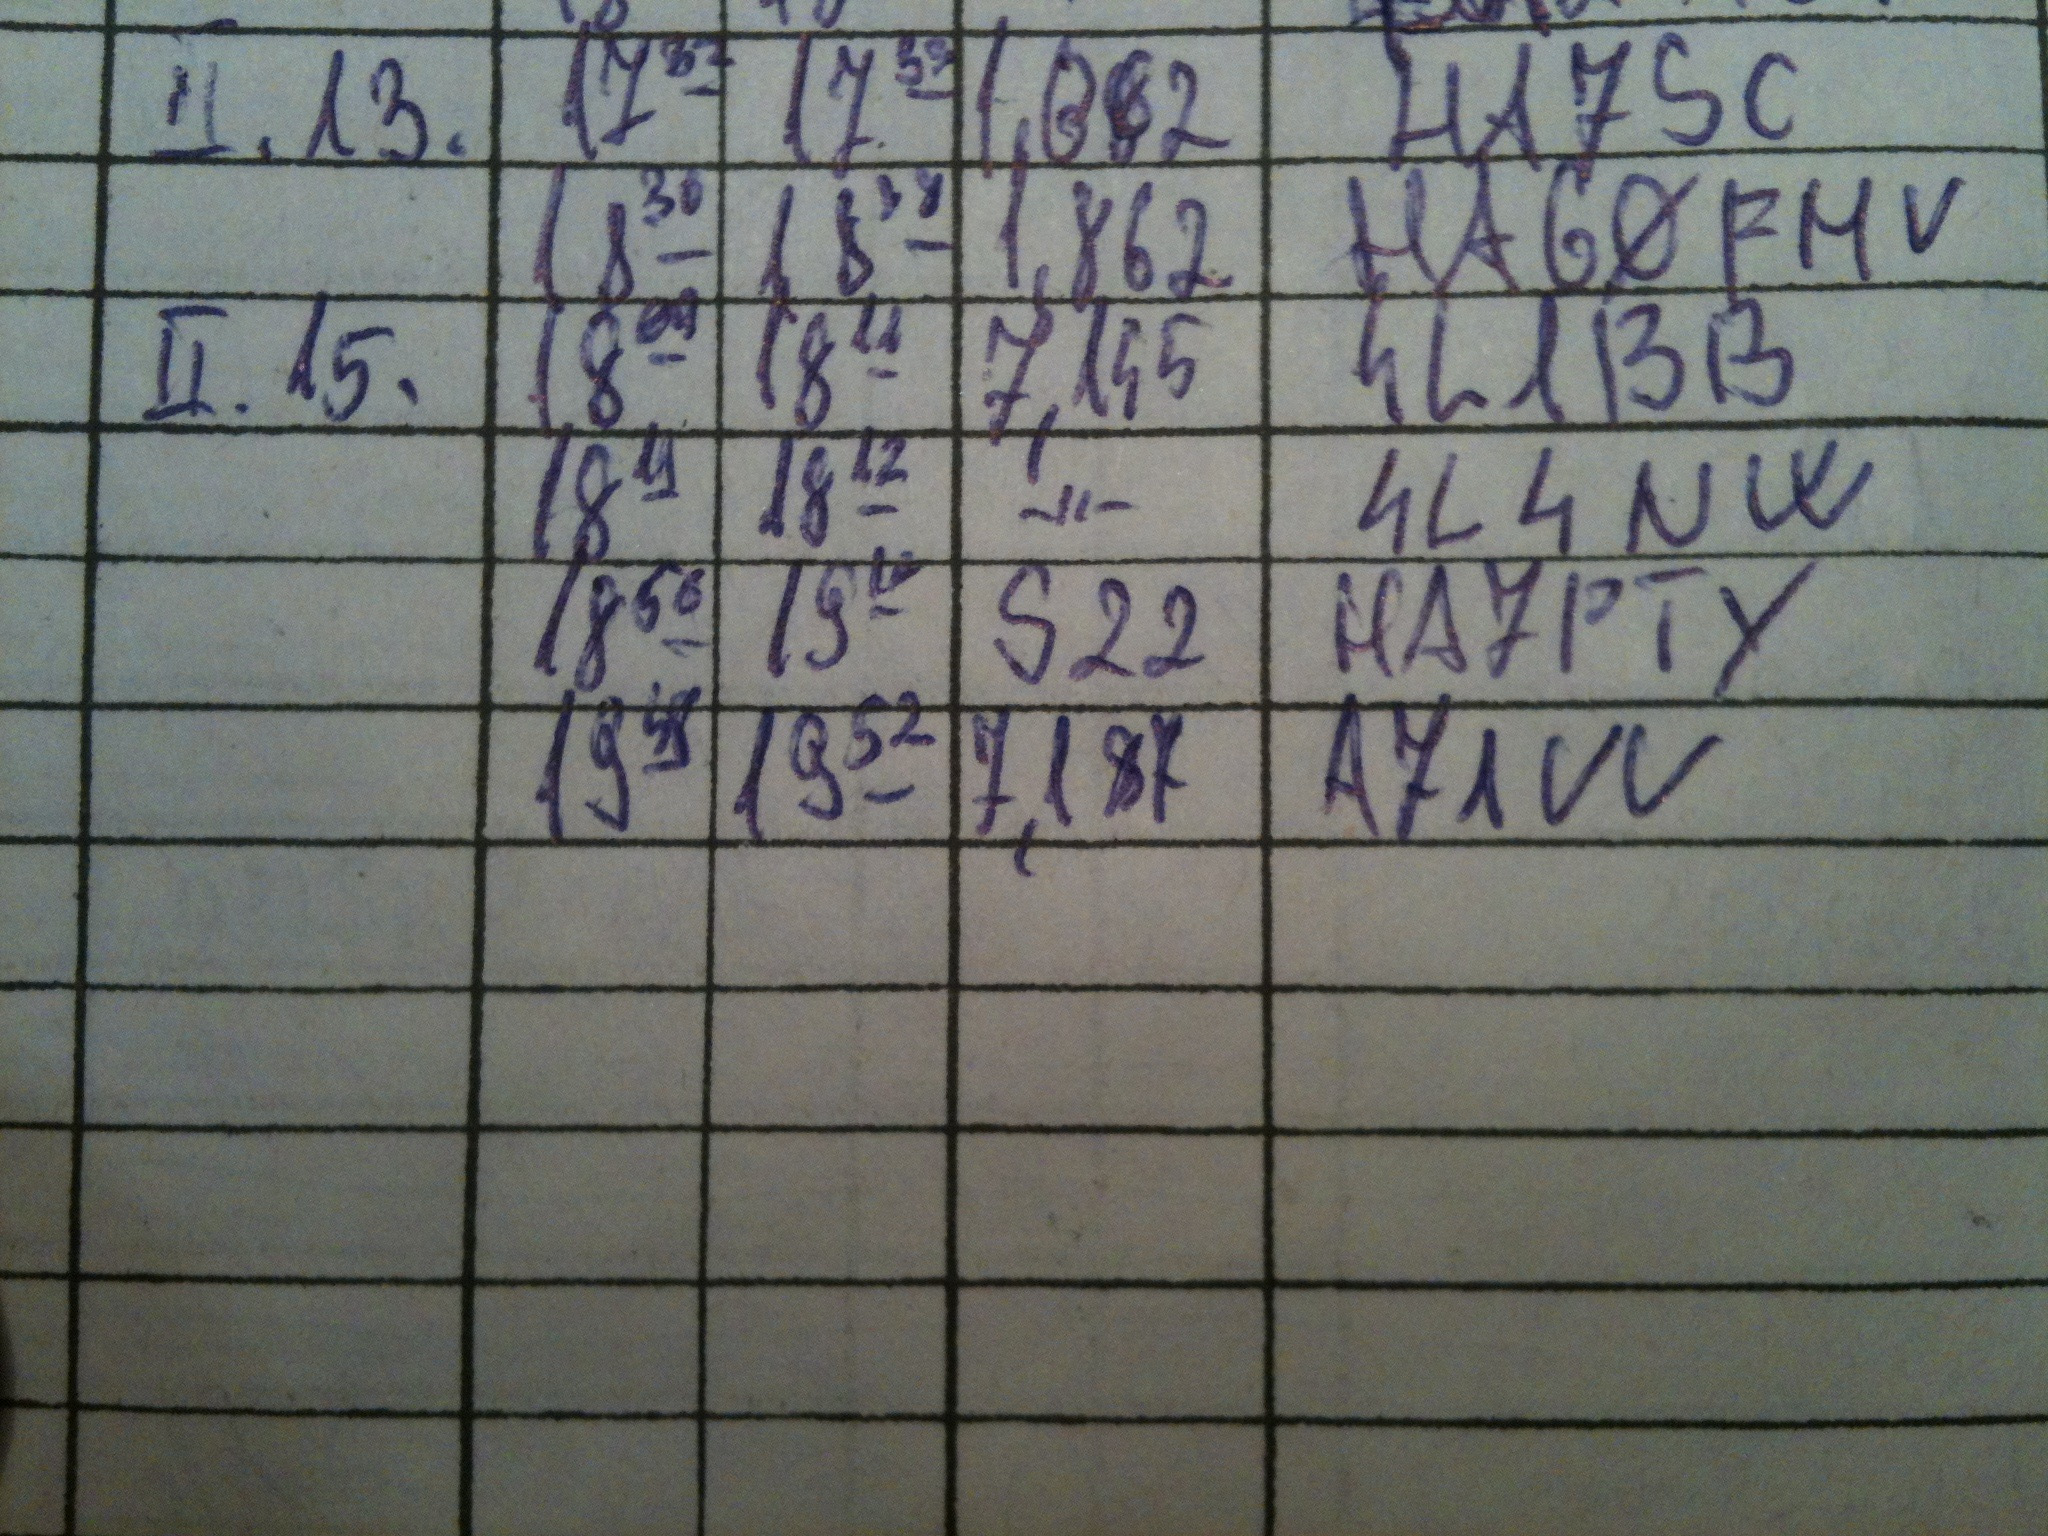 II.13. 17 17 HA7SC
18 30 18 38 1,862 HA6ØFMV
II.15. 18 09 18 11 7,145 4L1BB
18 11 18 12 -"- 4L4NW
18 50 19 10 S22 HA7PTY
19 19 52 7,187 A71VV